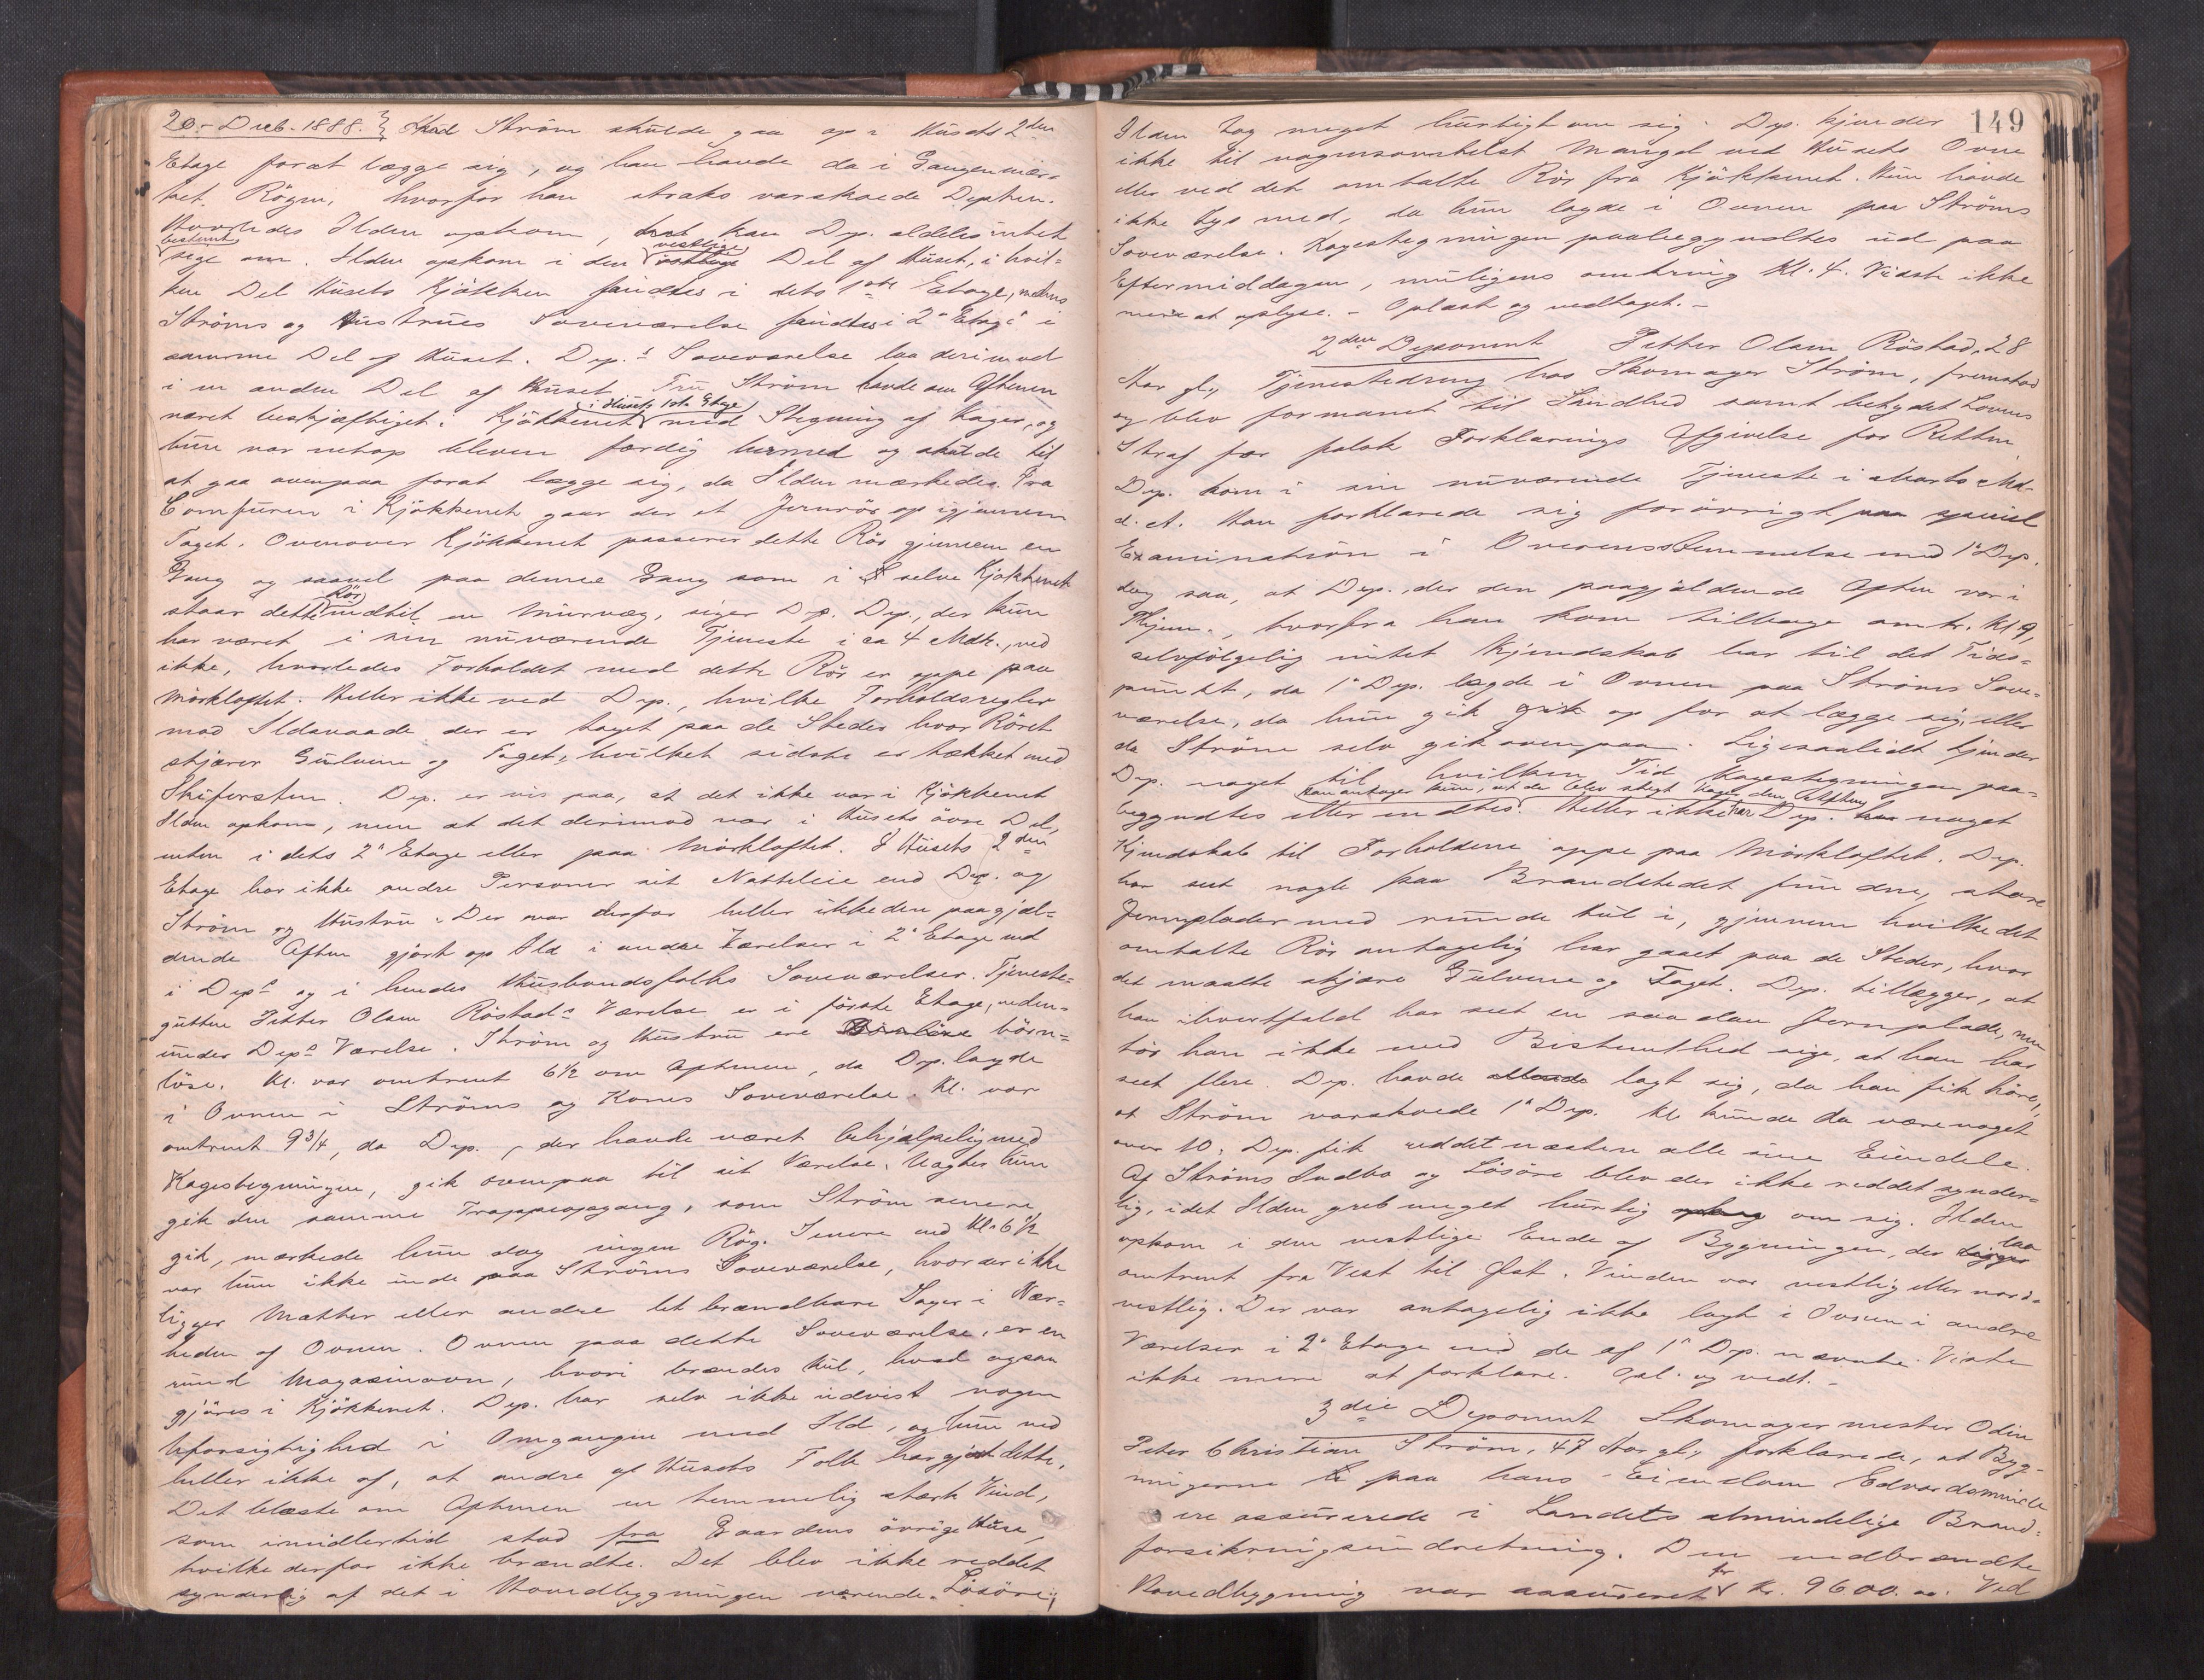 20. Decb. 1888. Strøm skulde gaa op i Husets 2den
Etage forat lægge sig, og han havde da i Gangen mær-
ket Røgen, hvorfor han straks varskoede Dep.
Hvorledes Ilden opkom, kan Dep. aldeles intet
bestemt
sige om. Ilden opkom i den vestlige Del af Huset, i hvil-
ken Del Husets Kjøkken fandtes i dets 1ste Etage, medens
Strøms og Hustrues Soveværelse fandtes i 2den Etage i
samme Del af Huset. Dep.s Soveværelse laa derimod
i en anden Del af Huset. Fru Strøm havde om Aftenen
været beskjæftiget i Kjøkkenet i Husets 1ste Etage med Stegning af Kager, og
hun var netop bleven færdig hermed og skulde til
at gaa ovenpaa forat lægge sig, da Ilden mærkedes. Fra
Comfuren i Kjøkkenet gaar der et Jernrør op igjennem
Taget. Ovenover Kjøkkenet passerer dette Rør gjennem en
Gang og saavel paa denne Gang som i selve Kjøkkenet
staar dette Rør indtil en Murvæg, siger Dep. Dep., der kun
har været i sin nuværende Tjeneste i ca 4 Mdr., ved
ikke, hvorledes Forholdet med dette Rør er oppe paa
Mørkloftet. Heller ikke ved Dep., hvilke Forholdsregler
mod Ildsvaade der er taget paa de Steder hvor Røret
skjærer Gulvene og Taget, hvilket sidste er tækket med
Skifersten. Dep. er vis paa, at det ikke var i Kjøkkenet
Ilden opkom, men at det derimod var i Husets øvre Del,
enten i dets 2den Etage eller paa Mørkloftet. I Husets 2den
Etage har ikke andre Personer sit Natteleie end Dep. og
Strøm og Hustru. Der var derfor heller ikke den paagjæl-
dende Aften gjort op Ild i andre Værelser i 2den Etage end
i Dep.s og i hendes Husbondsfolks Soveværelser. Tjeneste-
gutten Petter Olsen Røstad's Værelse er i første Etage, neden-
under Dep.s Værelse. Strøm og Hustru ere børn-
løse. Kl. var omtrent 6 1/2 om Aftenen, da Dep. lagde
i Ovnen i Strøms og Kones Soveværelse. Kl. var
omtrent 9 3/4, da Dep., der havde været behjælpelig med
Kagestegningen, gik ovenpaa til sit Værelse. Uagtet hun
gik den samme Trappeopgang, som Strøm senere
gik, mærkede hun dog ingen Røg. Senere end Kl. 6 1/2
var hun ikke inde paa Strøms Soveværelse, hvor der ikke
ligger Matter eller andre let brændbare Sager i Nær-
heden af Ovnen. Ovnen paa dette Soveværelse, er en
rund Magasinovn, hvori brændes Kul, hvad ogsaa
gjøres i Kjøkkenet. Dep. har selv ikke udvist nogen
Uforsigtighed i Omgangen med Ild, og hun ved
heller ikke af, at andre af Husets Folk har gjort dette.
Det blæste om Aftenen en temmelig stærk Vind,
som imidlertid stod fra Gaardens øvrige Huse,
hvilke derfor ikke brændte. Det blev ikke reddet
synderlig af det i Hovedbygningen værende Løsøre,
149
Ilden tog meget hurtigt om sig. Dep. kjender
ikke til nogensomhelst Mangel ved Husets Ovne
eller ved det omtalte Rør fra Kjøkkenet. Hun havde
ikke Lys med, da hun lagde i Ovnen paa Strøms
Soveværelse. Kagestegningen paabegyndtes ud paa
Eftermiddagen, muligens omkring Kl. 4. Vidste ikke
mere at oplyse. - Oplæst og vedtaget. -
2den Deponent Petter Olsen Røstad, 28
Aar gl., Tjenestedreng hos Skomager Strøm, fremstod
og blev formanet til Sandhed samt betydet Lovens
Straf for falsk Forklarings Afgivelse for Retten.
Dep. kom i sin nuværende Tjeneste i Marts Md.
d. A. Han forklarede sig forøvrigt paa speciel
Examination i Overensstemmelse med 1ste Dep.
dog saa, at Dep., der den paagjældende Aften var i
Thjem., hvorfra han kom tilbage omtr. Kl. 9,
selvfølgelig intet Kjendskab har til det Tids-
punkt, da 1ste Dep. lagde i Ovnen paa Strøms Sove-
værelse, da hun gik op for at lægge sig, eller
da Strøm selv gik ovenpaa. Ligesaalidt kjender
Dep. noget til hvilken Tid Kagestegningen paa-
han antager kun, at der blev stegt Kager den Aften
begyndtes eller endtes. Heller ikke har Dep. noget
Kjendskab til Forholdene oppe paa Mørkloftet. Dep.
har seet nogle paa Brandstedet fundne, store
Jernplader med runde Hul i, gjennem hvilke det
omtalte Rør antagelig har gaaet paa de Steder, hvor
det maatte skjære Gulvene og Taget. Dep. tillægger, at
han ihvertfald har seet en saadan Jernplade, men
tør han ikke med Bestemthed sige, at han har
seet flere. Dep. havde lagt sig, da han fik høre,
at Strøm varskoede 1ste Dep. Kl. kunde da være noget
over 10. Dep. fik reddet næsten alle sine Eiendele.
Af Strøms Indbo og Løsøre blev der ikke reddet synder-
lig, idet Ilden greb meget hurtig om sig. Ilden
opkom i den vestlige Ende af Bygningen, der laa
omtrent fra Vest til Øst. Vinden var vestlig eller nord-
vestlig. Der var antagelig ikke lagt i Ovnen i andre
Værelser i 2den Etage end de af 1ste Dep. nævnte. Vidste
ikke mere at forklare. Opl. og vedt. -
3die Deponent Skomagermester Odin
Peter Christian Strøm, 47 Aar gl., forklarede, at Byg-
ningerne paa hans Eiendom Edvardsminde
ere assurerede i Landets almindelige Brand-
forsikringsindretning. Den nedbrændte
Hovedbygning var assureret for Kr. 9600.00. Ved